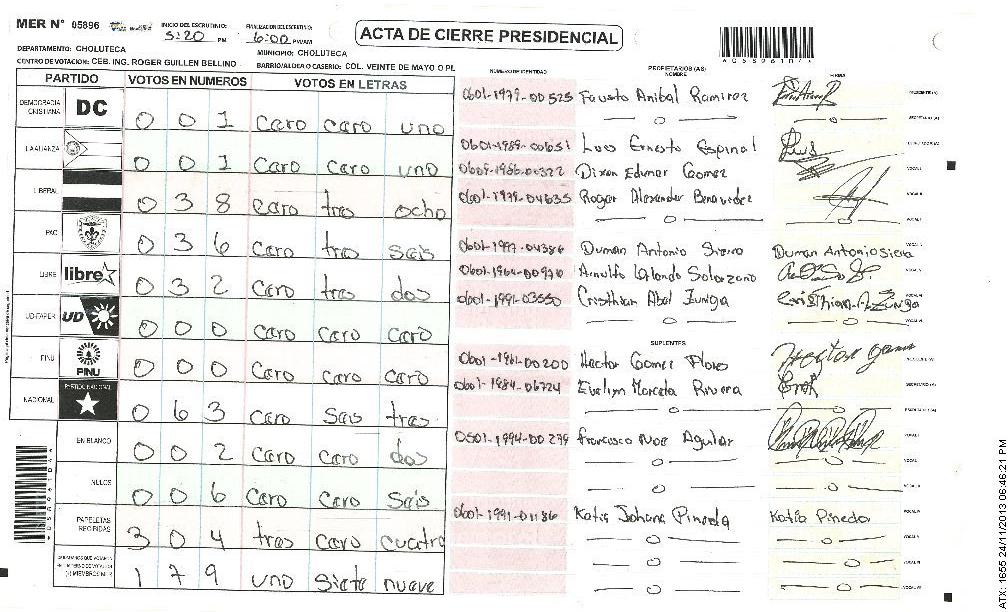 MER Nº 05896
INICIO DEL ESCRUTINIO: 5:20 PM
FINALIZACION DEL ESCRUTINIO: 6:00 PM/AM
ACTA DE CIERRE PRESIDENCIAL
DEPARTAMENTO: CHOLUTECA
MUNICIPIO: CHOLUTECA
CENTRO DE VOTACION: CEB. ING. ROGER GUILLEN BELLINO
BARRIO/ALDEA O CASERIO: COL. VEINTE DE MAYO O PL
PARTIDO VOTOS EN NUMEROS VOTOS EN LETRAS
DEMOCRACIA CRISTIANA DC 0 0 1 caro caro uno
LA ALIANZA 0 0 1 caro caro uno
LIBERAL 0 3 8 caro tres ocho
PAC 0 3 6 caro tres sais
LIBRE libre 0 3 2 caro tres dos
UD-FAPER UD 0 0 0 caro caro caro
PINU PINU 0 0 0 caro caro caro
NACIONAL PARTIDO NACIONAL 0 6 3 caro sais tres
EN BLANCO 0 0 2 caro caro dos
NULOS 0 0 6 caro caro sais
PAPELETAS RECIBIDAS 3 0 4 tres caro cuatro
1 7 9 uno siete nueve
NUMERO DE IDENTIDAD PROPIETARIOS (AS) NOMBRE FIRMA
0601-1979-00525 Fausto Anibal Ramirez
0601-1989-00651 Luis Ernesto Espinal
Dixon Edumar Gomez
0601-1979-04635 Roger Alexander Benavidez
0601-1997-04386 Duman Antonio Sierra Duman Antonio Siera
Arnulfo Orlando Solorzano
0601-1991-03550 Cristhian Abel Zuniga
SUPLENTES
0601-1961-00200 Hector Gomez Flores
0601-1984-06724 Evelyn Marcela Rivera
0501-1994-00279 Francisco Noe Aguilar
0601-1991-01186 Katia Johana Pineda Katia Pineda
ATX: 1655 24/11/2013 06:46:21 PM